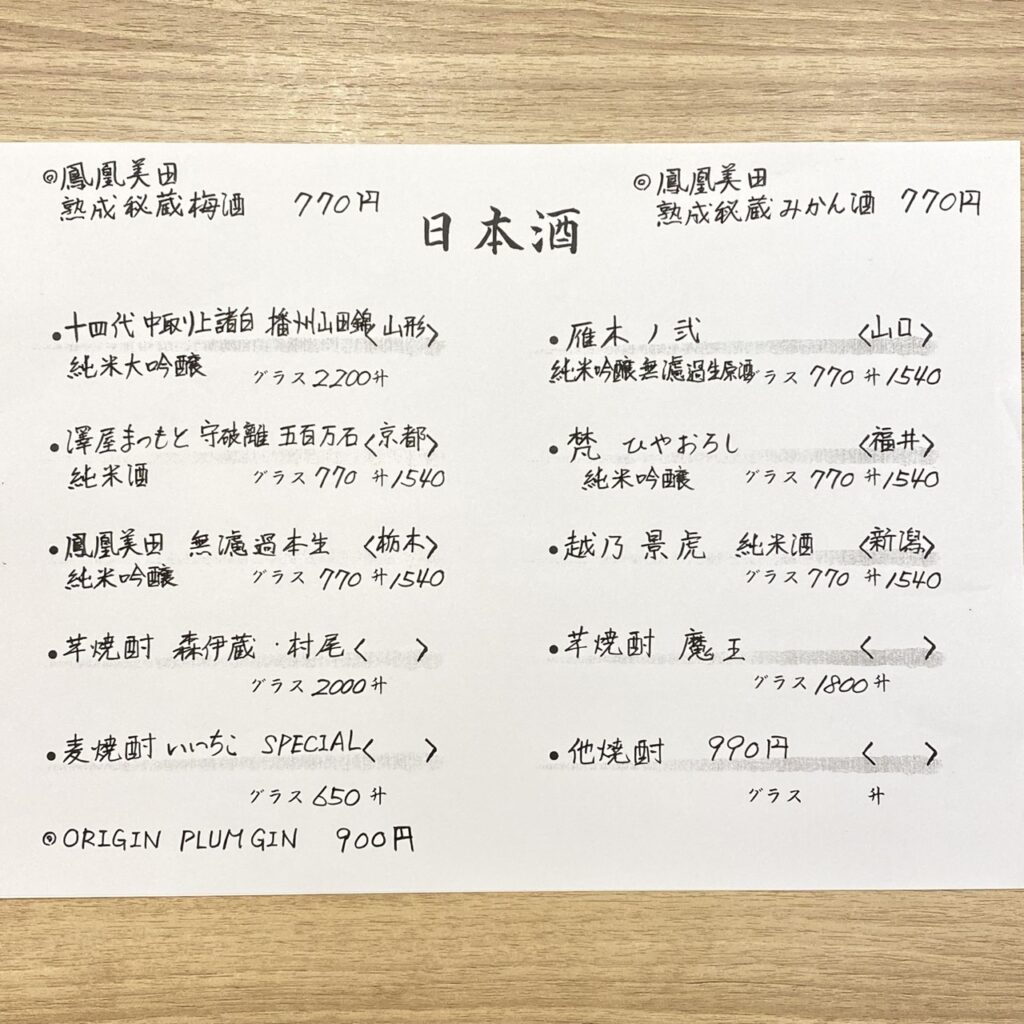 ◎鳳凰美田
熟成秘蔵梅酒 770円
◎鳳凰美田
熟成秘蔵みかん酒 770円
日本酒
・十四代 中取り上諸白 播州山田錦〈山形〉
純米大吟醸 グラス2200升
・澤屋まつもと 守破離 五百万石〈京都〉
純米酒 グラス770 升1540
・鳳凰美田 無濾過本生 〈栃木〉
純米吟醸 グラス770 升1540
・芋焼酎 森伊蔵・村尾〈 〉
グラス2000升
・麦焼酎 いいちこ SPECIAL〈 〉
グラス650 升
◎ORIGIN PLUM GIN 900円
・雁木 ノ弐 〈山口〉
純米吟醸無濾過生原酒グラス 770 升1540
・梵 ひやおろし 〈福井〉
純米吟醸 グラス770 升1540
・越乃景虎 純米酒 〈新潟〉
グラス770 升1540
・芋焼酎 魔王 〈 〉
グラス1800升
・他焼酎 990円 〈 〉
グラス 升